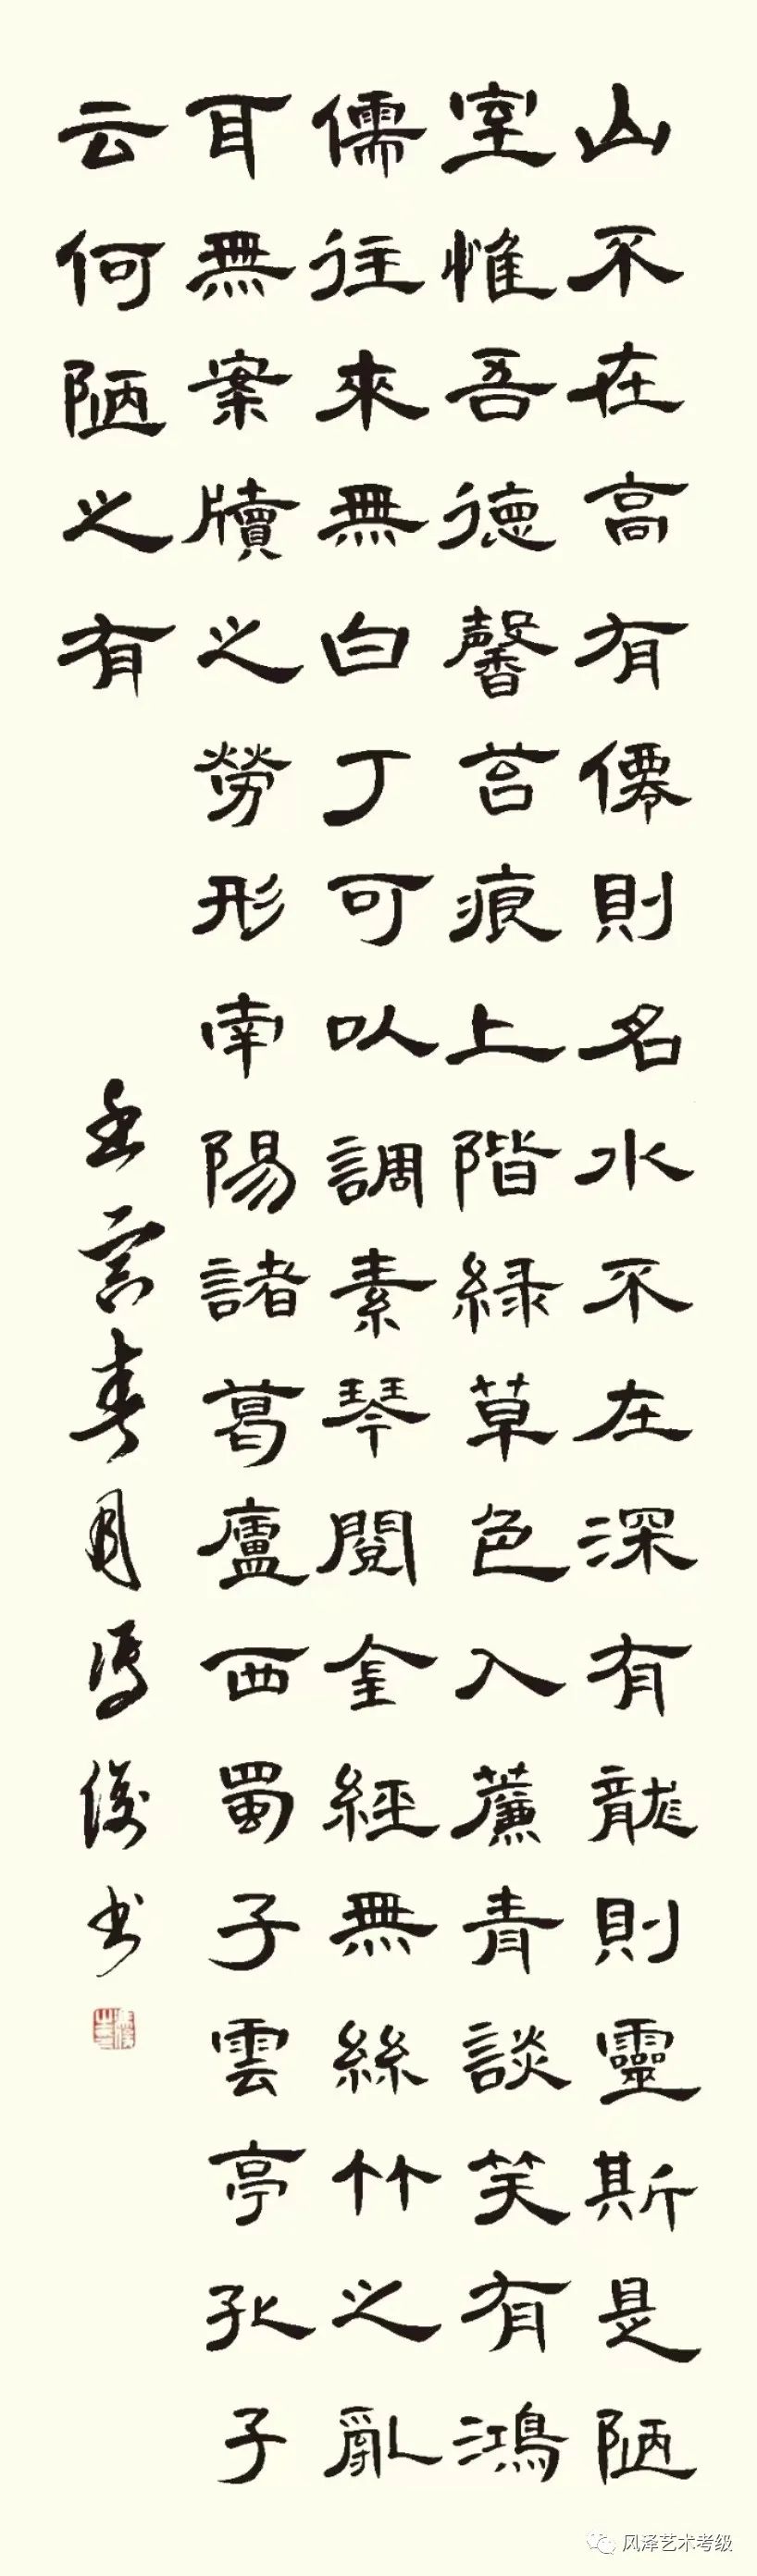 山不在高有僊則名水不在深有龍則靈斯是陋
室惟吾德馨苔痕上階緑草色入薕青談笑有鴻
儒往來無白丁可以調素琴閱金經無絲竹之亂
耳無案牘之勞形南陽諸葛廬西蜀子雲亭孔子
云何陋之有
壬寅春月馮俊书
风泽艺术考级